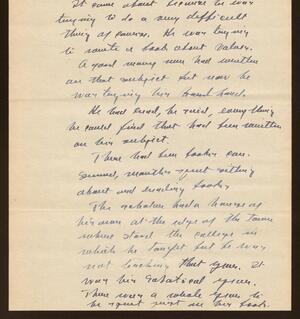 It came about because he was
trying to do a very difficult
thing of course. He was trying
to write a book about values.
A good many men had written
on that subject but now he
was trying his hand.
He had read, he said, everything
he could find that had been written
on his subject.
There had been books
months spent sitting
about and reading books.
The scholar had a house of
his own at the edge of the town
where stood the college in
which he taught but he was
not teaching that year. It
was his sabatical year.
There was a whole year to
be spent just on his book.